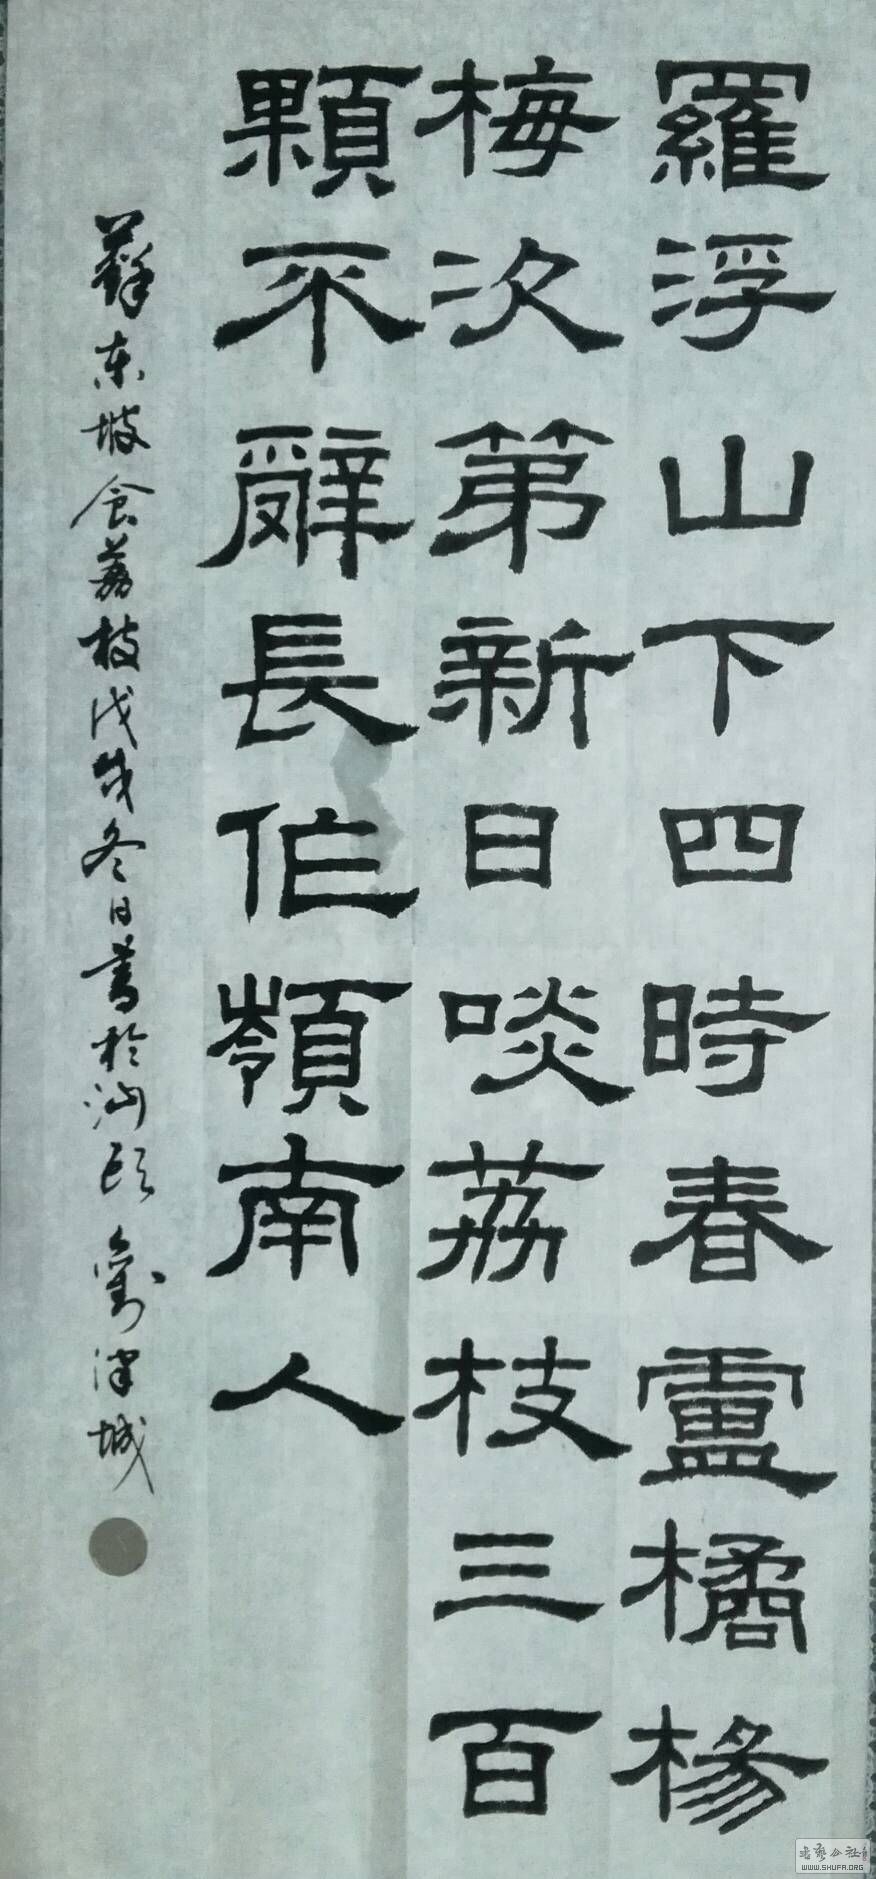 羅浮山下四時春盧橘楊
梅次第新日啖荔枝三百
顆不辭長作嶺南人
蘇東坡食荔枝戊戌冬日書於汕頭劉澤城
书艺公社
WWW.SHUFA.ORG